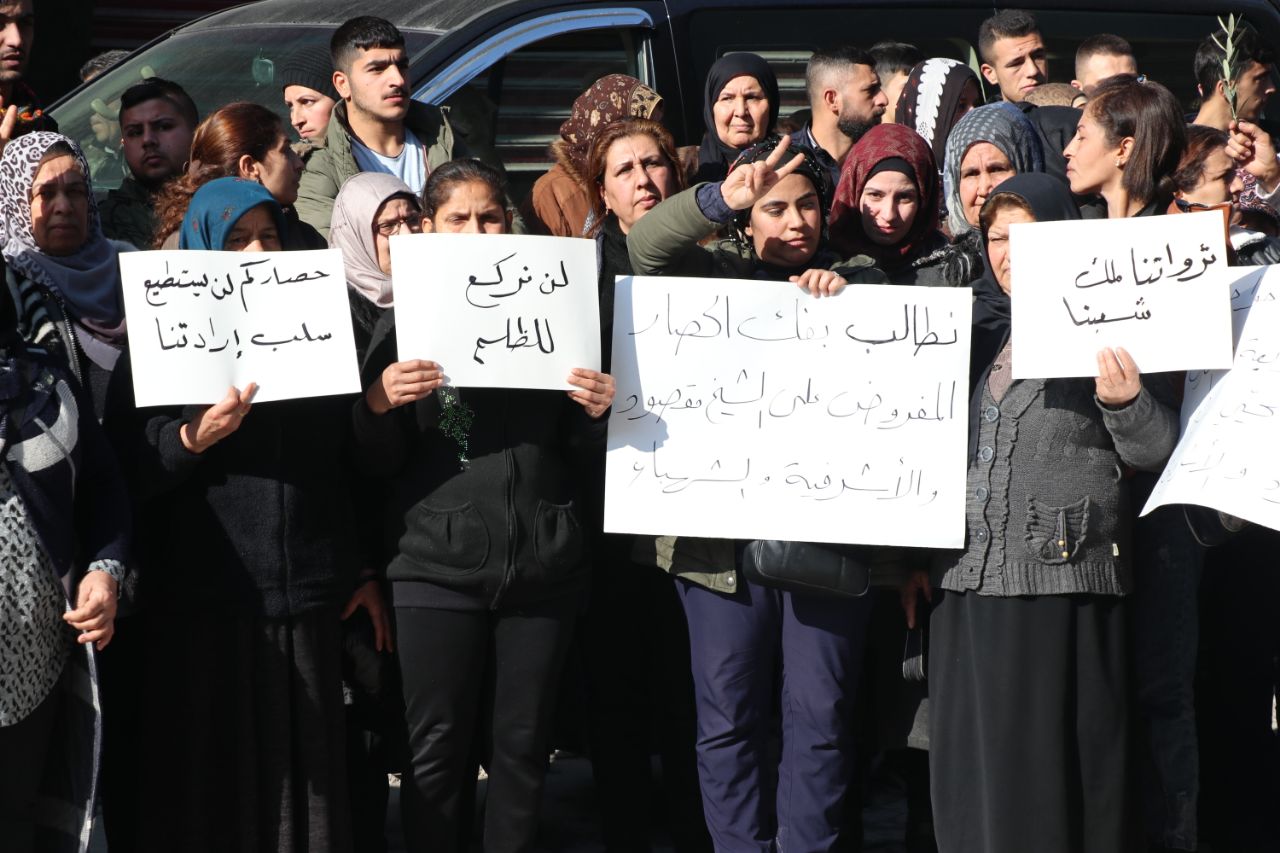 حصاركم لن يستطيع
سلب إرادتنا
لن نركع
للظلم
نطالب بفك الحصار
المفروض على الشيخ مقصود
والأشرفية والشهباء
ثرواتنا ملك
شعبنا